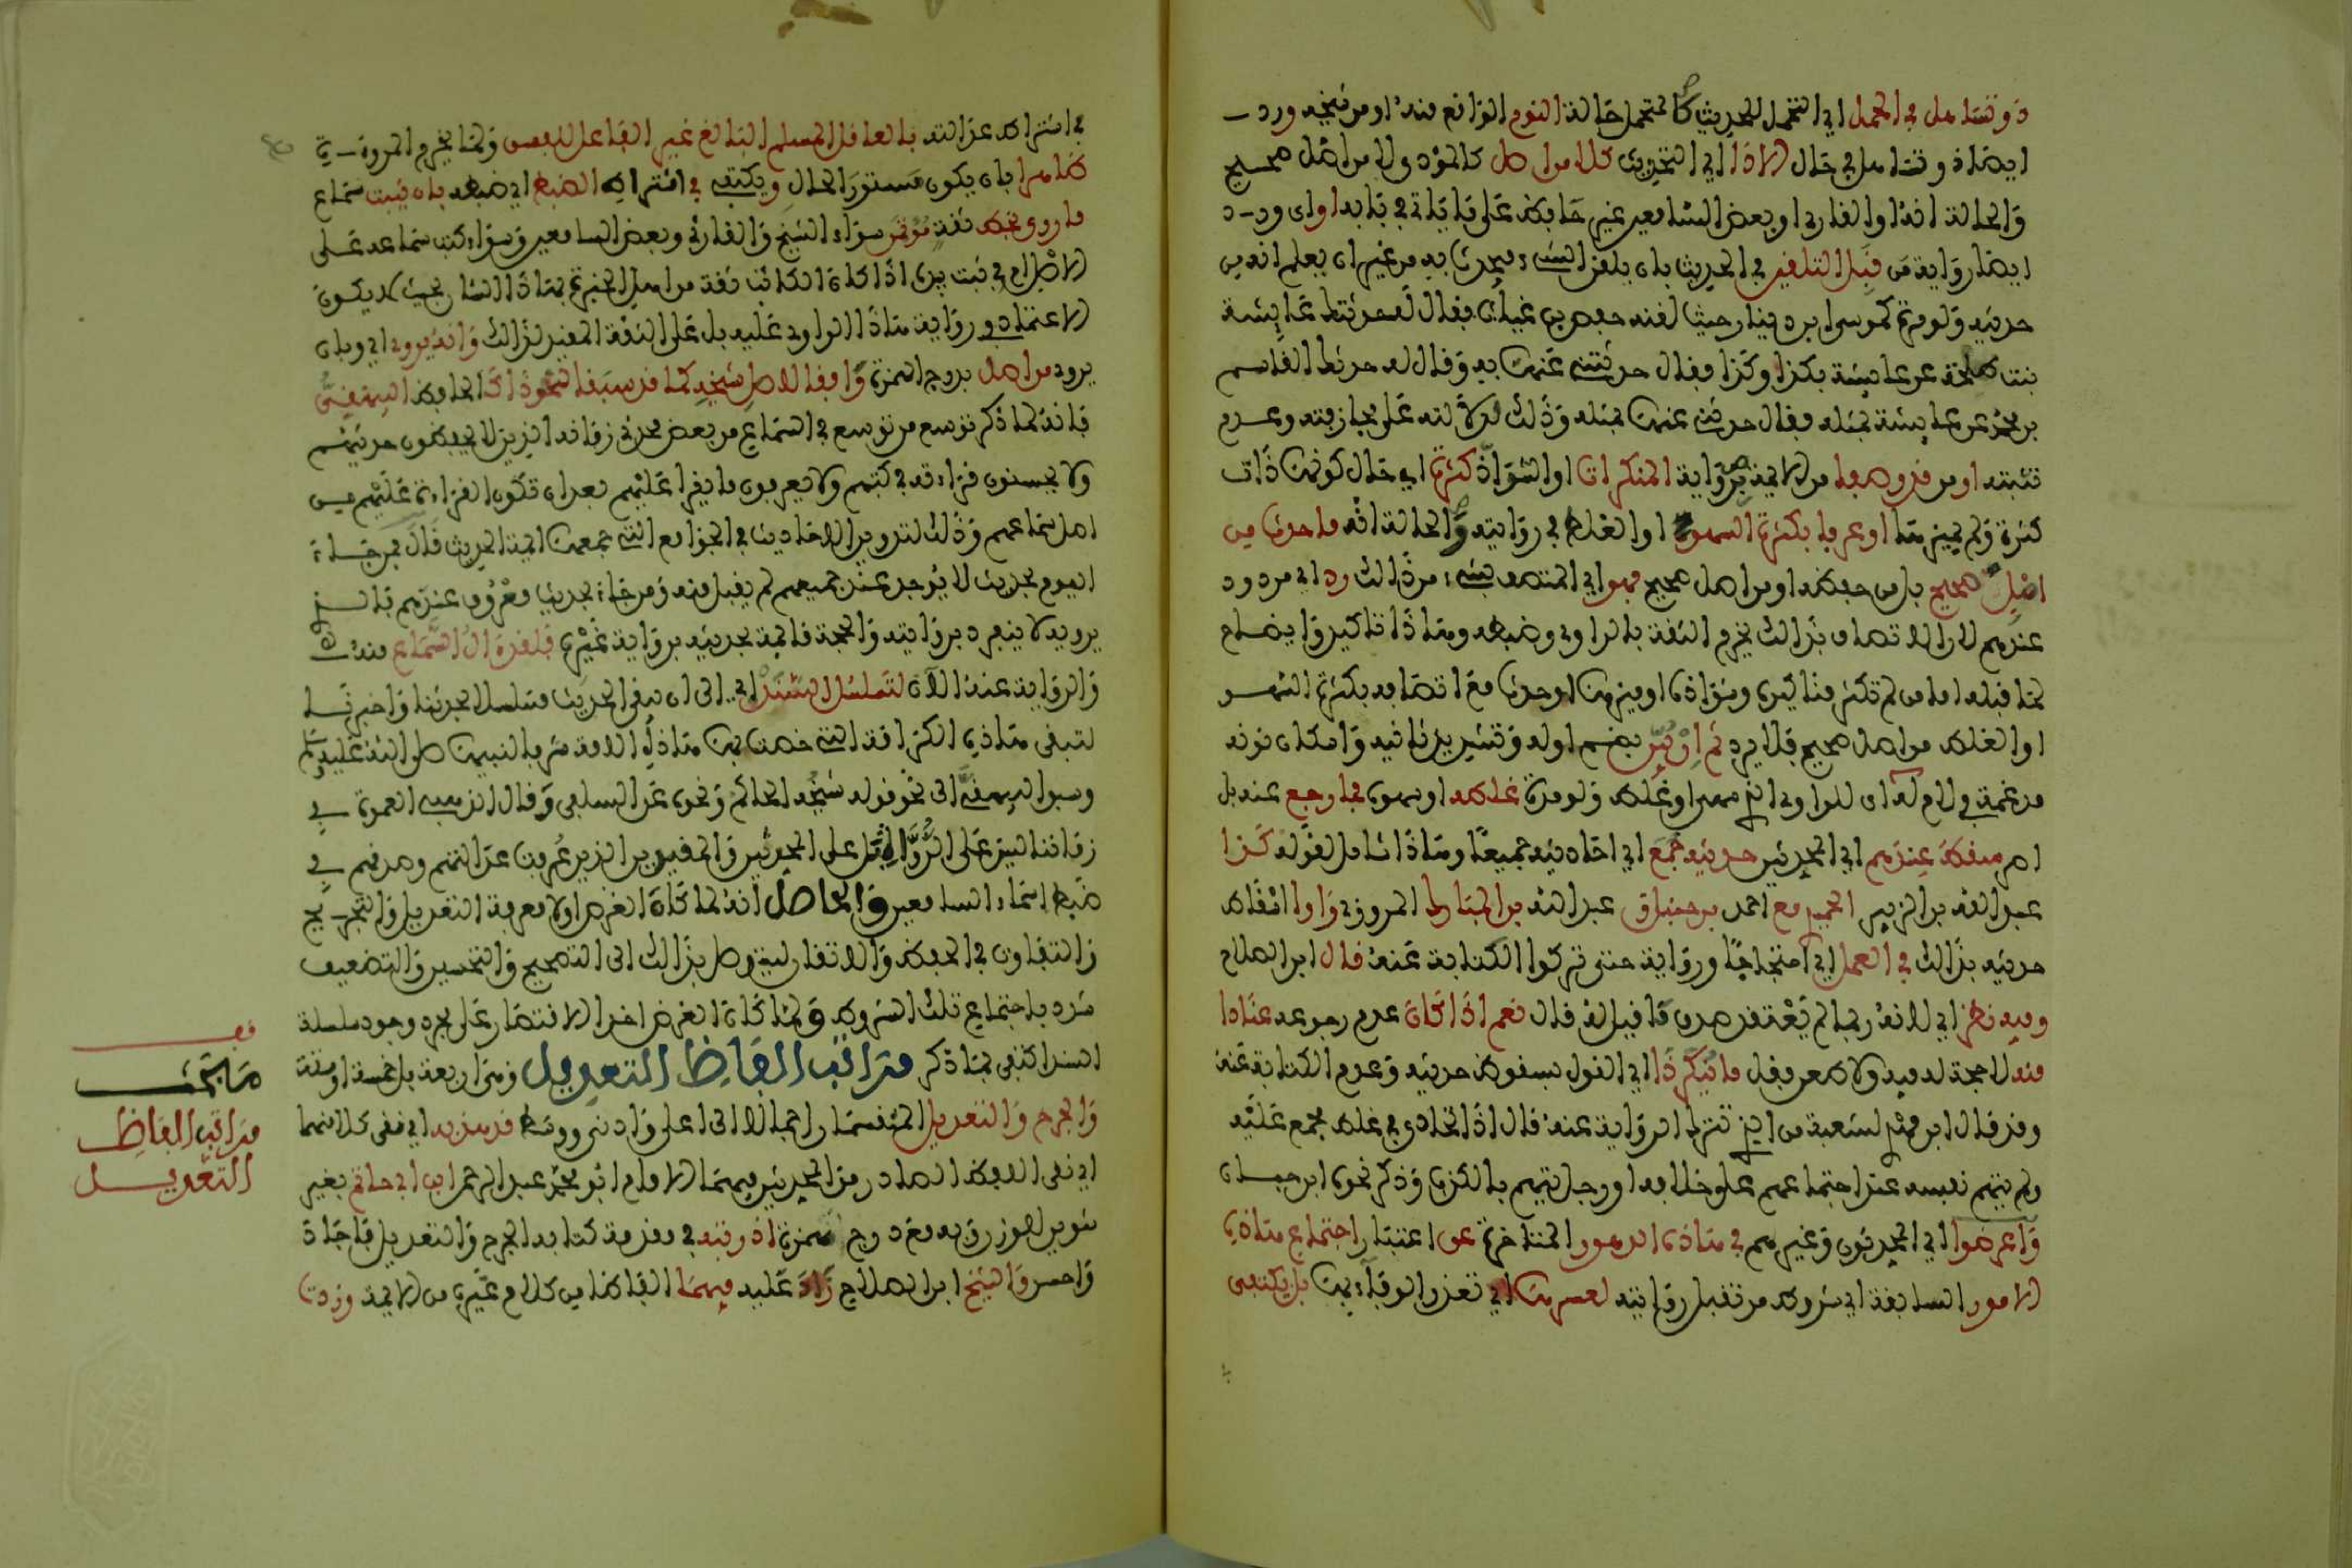 ذو تساهل في الحمل اي التحمل للحديث كالمتحمل حالة النوم الواقع منه او من شيخه ورد
ايضا ذو تساهل في حال الاذا اي التحديث كلا من اصل كالمؤدي لا من اصل صحيح
والحالة انه او القاري او بعض السامعين غير حافظ على ما ياتي في بابه او اي ورد
ايضا رواية من قبل التلقين في الحديث بان يلقن الشيء فيحدث به من غير ان يعلم انه من
حديثه ولو مرة كموسى بن دينار حيث لقنه حفص بن غياث فقال له حدثتك عائشة
بنت طلحة عن عايشة بكذا وكذا فقال حدثتني عنها به وقال له حدثك القاسم
بن محمد عن عايشة بمثله فقال حدثني عنها بمثله وذلك لدلالته على مجازفته وعدم
تثبته او من قد وصفا من الايمة برواية المنكرات او الشواذ كثرة اي حال كونها ذات
كثرة ولم يميزها او عرف بكثرة السهو او الغلط في روايته والحالة انه ما حدث من
اصل صحيح بل من حفظه او من اصل غير صحيح فهو اي المتصف بشيء من ذلك رد اي مردود
عندهم لان الاتصاف بذلك يخرم الثقة بالراوي وضبطه وهذا تاكيد وايضاح
لما قبله اما من لم تكثر مناكيره وشواذه او ميزها او حدث مع اتصافه بكثرة السهو
او الغلط من اصل صحيح فلا يرد ثم ان بين بضم اوله وتشديد ثانيه وامكان نونه
مدغمة في لام له اي للراوي الذي سها او غلط ولو مرة غلطه او سهوه فما رجع عنه بل
اصر سقط عندهم اي المحدثين حديثه جمع اي احاديثه جميعا وهذا شامل لقوله كذا
عبد الله بن الزبير الحميدي مع احمد بن حنبل ثم عبد الله بن المبارك المروزي راوا اسقاط
حديثه بذلك في العمل اي احتجاجا ورواية حتى تركوا الكتابة عنه قال ابن الصلاح
وفيه نظر اي لانه ربما لم يعتقد صدق ما قيل له قال نعم اذا كان عدم رجوعه عنادا
منه لا حجة له فيه ولا مطعن فقل ما ينكر ذا اي القول بسقوط حديثه وعدم الكتابة عنه
وقد قال ابن مهدي لشعبة من الذي تترك الرواية عنه قال اذا تمادى في غلط مجمع عليه
ولم يتهم نفسه عند اجتماعهم على خلافه او رجل يتهم بالكذب وذكر نحوه ابن حبان
واعرضوا اي المحدثون وغيرهم في هذه الدهور المتاخرة عن اعتبار اجتماع هذه
الامور السابقة اي شروط من تقبل روايته لعسرها اي تعذر الوفاء بها بل يكتفى
في اشتراط عدالته بالعاقل المسلم البالغ غير الفاعل للفسق ولما يخرم المروءة في
ظاهر بان يكون مستور الحال ويكتفى في اشتراط الضبط اي ضبطه بان يثبت سماع
ما روى بخط ثقة مؤتمن سواء الشيخ والقارئ وبعض السامعين وسواء كتب سماعه على
الاصل ام في ثبت بيده اذا كان الكاتب ثقة من اهل الخبرة بهذا الشان بحيث لا يكون
الاعتماد في رواية هذا الراوي عليه بل على الثقة المفيد لذلك وانه يروي اي وبان
يروي من اصل بروج الهمزة وافقا لاصل شيخه كما قد سبقا لنحو ذاك الحافظ البيهقي
فانه لما ذكر توسع من توسع في السماع من بعض محدثي زمانه الذين لا يحفظون حديثهم
ولا يحسنون قراءته في كتبهم ولا يعرفون ما يقرا عليهم بعد ان تكون القراءة عليهم من
اصل سماعهم وذلك لتدوين الاحاديث في الجوامع التي جمعت ايمة الحديث قال فمن جاء
اليوم بحديث لا يوجد عند جميعهم لم يقبل منه ومن جاء بحديث معروف عندهم فالذي
يرويه لا ينفرد بروايته والحجة قايمة بحديثه برواية غيره فلقد ءال السماع منه
والرواية عنه الان لتسلسل السند اي الى ان يبقى الحديث متسلسلا بحدثنا واخبرنا
لتبقى هذه الكرامة التي خصت بها هذه الامة شرفا لنبينا صلى الله عليه وسلم
وسبق البيهقي الى نحو قوله شيخه الحاكم ونحوه عن السلفي وقال الذهبي العمدة في
زماننا ليس على الرواة بل على المحدثين والمفيدين الذين عرفت عدالتهم وصدقهم في
ضبط اسماء السامعين والحاصل انه لما كان الغرض اولا معرفة التعديل والتجريح
والتفاوت في الحفظ والاتقان ليتوصل بذلك الى التصحيح والتحسين والتضعيف
شدد باجتماع تلك الشروط ولما كان الغرض اخرا الاقتصار على مجرد وجود سلسلة
السند اكتفي بما ذكر مراتب الفاظ التعديل وهي اربعة بل خمسة او ستة
والجرح والتعديل المنقسمان راجعا الى اعلى وادنى ووسط قد هذبه اي نقى كلا منهما
اي نقى اللفظ الصادر من المحدثين فيهما الامام ابو محمد عبد الرحمن ابن ابي حاتم بغير
تنوين للوزن وبه مع درج همزة اذ رتبه في مقدمة كتابه الجرح والتعديل فاجاد
واحسن والشيخ ابن الصلاح زاد عليه فيهما الفاظا من كلام غيره من الايمة وزدت
قف
مبحث
مراتب الفاظ
التعديل